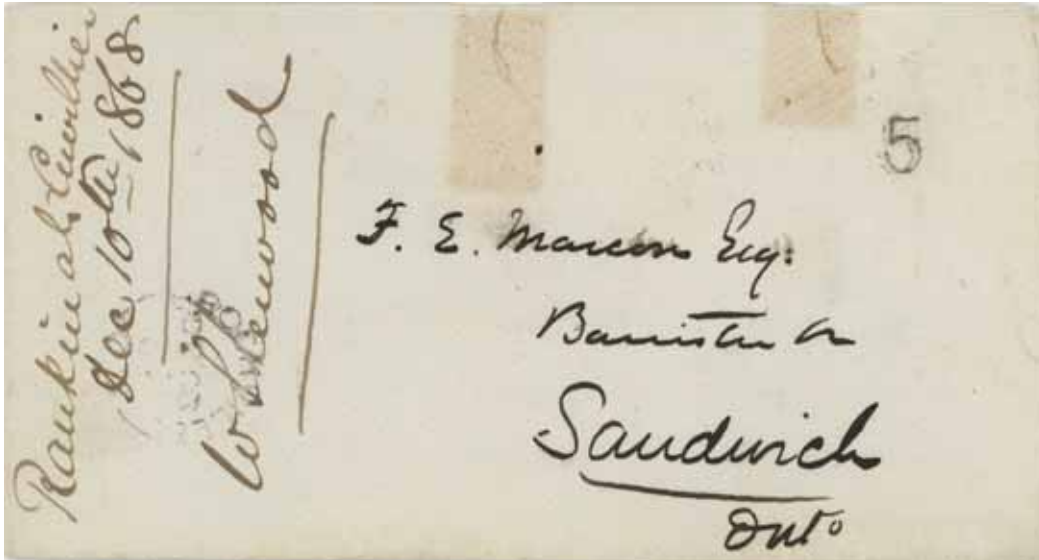 Rankin als Cuvillier
Dec 10th 1868
W Sherwood
5
F. E. Marcon Esq:
Barrister &
Sandwich
Onto